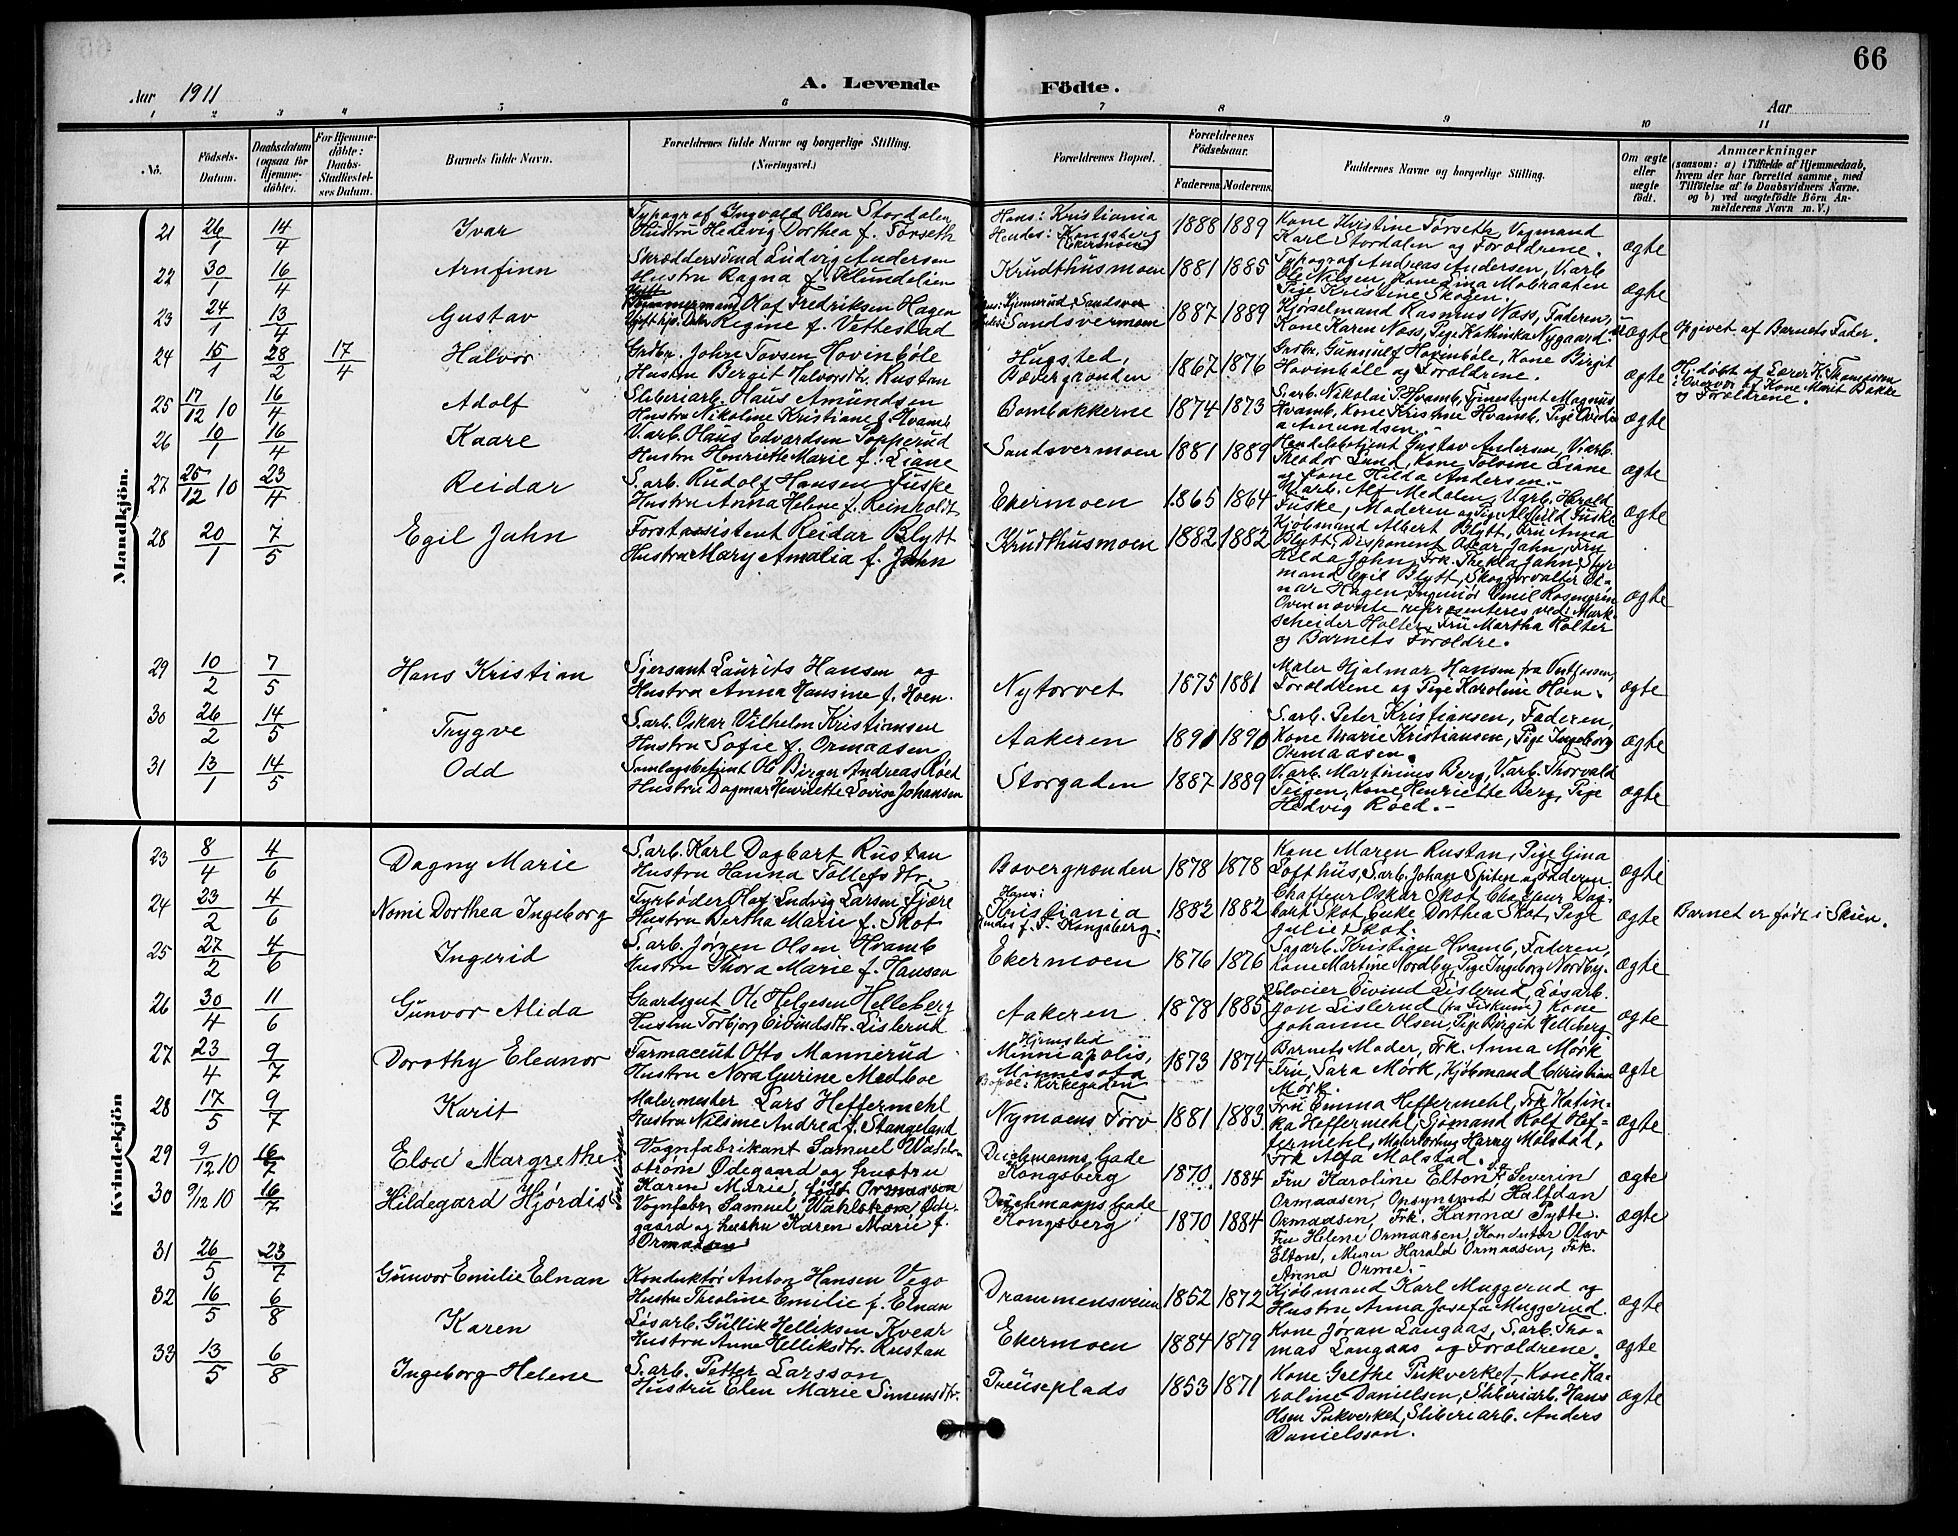 66
A. Levende Födte.
Aar 1911
Aar
1 2 3 4 5 6 7 8 9 10 11
No.
Födsels-Datum.
Daabsdatum (ogsaa for Hjemme-döbte).
For Hjemme-döbte: Daabs-Stadfæstel-ses Datum.
Barnets fulde Navn.
Forældrenes fulde Navne og borgerlige Stilling. (Næringsvei.)
Forældrenes Bopæl.
Forældrenes Födselsaar.
Faderens. Moderens.
Faddernes Navne og borgerlige Stilling.
Om ægte eller uægte födt.
Anmærkninger
(saasom: a) i Tilfælde af Hjemmedaab, hvem der har forrettet samme, med Tilföielse af to Daabsvidners Navne. og b) ved uægtefödte Börn Anmelderens Navn m. V.)
Mandkjön.
21 26/1 14/4 Ivar
Typograf Ingvald Olsen Stordalen
Hustru Hedevig Dorthea f. Törseth
Hans: Kristiania
Hendes: Kongsberg (Ekermoen)
1888 1889
Kone Kristine Törseth, Vognmand
Karl Stordalen og Forældrene.
ægte
22 30/1 16/4 Arnfinn
Skræddersvend Ludvig Andersen
Hustru Ragna f. Klundelien
Krudthusmoen 1881 1885
Typograf Andreas Andersen, V.arb.
Ole Nilsen, Kone Lina Mobraaten
Pige Kristine Skogen.
ægte
23 24/1 13/4 Gustav
Olaf Fredriksen Hagen
Regine f. Vittestad
Hjennerud, Sandsver
Sandsvermoen
1887 1889
Kjørselmand Rasmus Næss, Faderen,
Kone Karen Næss, Pige Kathinka Nygaard.
uægte
Opgivet af Barnets Fader.
24 15/1 28/2 17/4 Halvor
Grdbr. John Tovsen Hovinböle
Hustru Bergit Halvorsdtr. Rustan
Hugsted,
Bævergrænden
1867 1876
Grdbr. Gunnulf Hovinböle, Kone Birgit
Hovinböle og Forældrene.
ægte
Hj.döbt af Lærer K. Thomassen
i Overvær af Kone Marit Bakke
og Forældrene.
25 17/12 10 16/4 Adolf
Sliberiarb. Hans Amundsen
Hustru Nikoline Kristiane f. Hvamb
Bombakkerne 1874 1873
S.arb. Nikolai P. Hvamb, Tjenestegut Magnus
Hvamb, Kone Kristine Hvamb, Pige Ovedia
Amundsen.
ægte
26 10/1 16/4 Kaare
V.arb. Olaus Edvardsen Topperud
Hustru Henriette Marie f. Liane
Sandsvermoen 1881 1889
Handelsbetjent Gustav Andersen, V.arb.
Theodor Lund, Kone Tolvine Liane
og Kone Hilda Andersen.
ægte
27 25/12 10 23/4 Reidar
S.arb. Rudolf Hansen Fuske
Hustru Anna Helene f. Reinholdt
Ekermoen 1865 1864
V.arb. Alf Medalen, V.arb. Harald
Fuske, Moderen og Pige Alfhild Fuske
ægte
28 20/1 7/5 Egil Jahn
Forstassistent Reidar Blytt
Hustru Mary Amalia f. Jahn
Krudthusmoen 1882 1882
Kjöbmand Albert Blytt, Fru Anna
Blytt, Disponent Oscar Jahn, Fru
Hilda Jahn, Frk. Thekla Jahn, Styr
mand Egil Blytt, Skogforvalter Ei-
nar Hagen, Ingeniør Emil Rosengren
Ovennævnte repræsenteres ved: Mark-
scheider Holter, Fru Martha Holter
og Barnets Forældre.
ægte
29 10/2 7/5 Hans Kristian
Sjersant Laurits Hansen og
Hustru Anna Hansine f. Hoen.
Nytorvet 1875 1881
Maler Hjalmar Hansen fra Vestfossen,
Forældrene og Pige Karoline Hoen.
ægte
30 26/2 14/5 Trygve
S.arb. Oskar Vilhelm Kristiansen
Hustru Sofie f. Ormaasen
Aakeren 1891 1890
S.arb. Peter Kristiansen, Faderen,
Kone Marie Kristiansen, Pige Ingeborg
Ormaasen.
ægte
31 13/1 14/5 Odd
Samlagsbetjent Ole Birger Andreas Röed
Hustru Dagmar Henriette Lovise Johansen
Storgaden 1887 1889
V.arb. Martinius Berg, V.arb. Thorvald
Teigen, Kone Henriette Berg, Pige
Hedvig Röed.
ægte
Kvindekjön
23 8/4 4/6 Dagny Marie
S.arb. Karl Dagbart Rustan
Hustru Hanna Tollefsdtr.
Bævergrænden 1878 1878
Kone Maren Rustan, Pige Gina
Lofthus, S.arb. Johan Spiten og Faderen.
ægte
24 23/2 4/6 Nomi Dorthea Ingeborg
Fyrböder Olaf Ludvig Larsen Tjære
Hustru Bertha Marie f. Skot
Hans:
Kristiania
Hendes f. T. Kongsberg.
1882 1882
Chaffeur Oskar Skot, Chaffeur Dag-
bart Skot, Enke Dorthea Skot, Pige
Julie Skot.
ægte
Barnet er födt i Skien.
25 27/2 4/6 Ingerid
S.arb. Jörgen Olsen Hvamb
Hustru Thora Marie f. Hansen
Ekermoen 1876 1876
Sagarb. Kristian Hvamb, Faderen,
Kone Martine Nordby, Pige Ingeborg Nordby.
ægte
26 30/4 11/6 Gunvor Alida
Gaardsgut Ole Helgesen Helleberg
Hustru Torbjørg Eivindsdtr. Lislerud
Aakeren 1878 1885
Selveier Eivind Lislerud, Løsarb.
Jon Lislerud (fra Fiskum) Kone
Johanne Olsen, Pige Birgit Helleberg
ægte
27 23/4 9/7 Dorothy Eleanor
Farmaceut Otto Mannerud
Hustru Nora Gurine Medboe
Hjemsted
Minniapolis,
Minnesota
Bopæl: Kirkegaden
1873 1874
Barnets Moder, Frk. Anna Mörk
Fru Sara Mörk, Kjöbmand Christian
Mörk.
ægte
28 17/5 9/7 Karit
Malermester Lars Heffermehl
Hustru Nilsine Andrea f. Stangeland
Nymoens Torv 1881 1883
Fru Emma Heffermehl, Frk. Katin-
ka Heffermehl, Sjømand Rolf Hef-
fermehl, Malerlærling Harry Molstad,
Frk. Alfa Molstad.
ægte
29 9/12 10 16/7 Elsa Margrethe
Vognfabrikant Samuel Wahl-
ström Ødegaard og hustru
Karen Marie, födt Ormaasen
Deichmanns Gade
Kongsberg
1870 1884
Fru Karoline Elton, Severin
Ormaasen, Opsynsmd Halfdan
Ormaasen, Frk. Hanna Pytte.
ægte
Tvillinger
30 9/12 10 16/7 Hildegard Hjördis
Vognfabr. Samuel Wahlström Øde-
gaard og hustru Karen Marie f.
Ormaasen
Deichmanns Gade
Kongsberg
1870 1884
Fru Helene Ormaasen, Konduktør Olav
Elton, Murer Harald Ormaasen, Frk.
Anna Orme.
ægte
31 26/5 23/7 Gunvor Emilie Elnan
Konduktör Anton Hansen Vego
Hustru Theoline Emilie f. Elnan
Drammensveien 1852 1872
Kjöbmand Karl Muggerud og
Hustru Anna Josefa Muggerud
ægte
32 16/5 6/8 Karen
Løsarb. Gullik Helliksen Kvear
Hustru Anne Helliksdtr. Rustan
Ekermoen 1884 1879
Kone Jöran Langaas, S.arb. Tho-
mas Langaas og Forældrene.
ægte
33 13/5 6/8 Ingeborg Helene
S.arb. Petter Larsson
Hustru Elen Marie Simensdtr.
Preuseplads 1853 1871
Kone Grethe Pukverket, Kone Ka-
roline Danielsen, Sliberiarb. Hans
Olsen Pukverket, Sliberiarb. Anders
Danielsson.
ægte